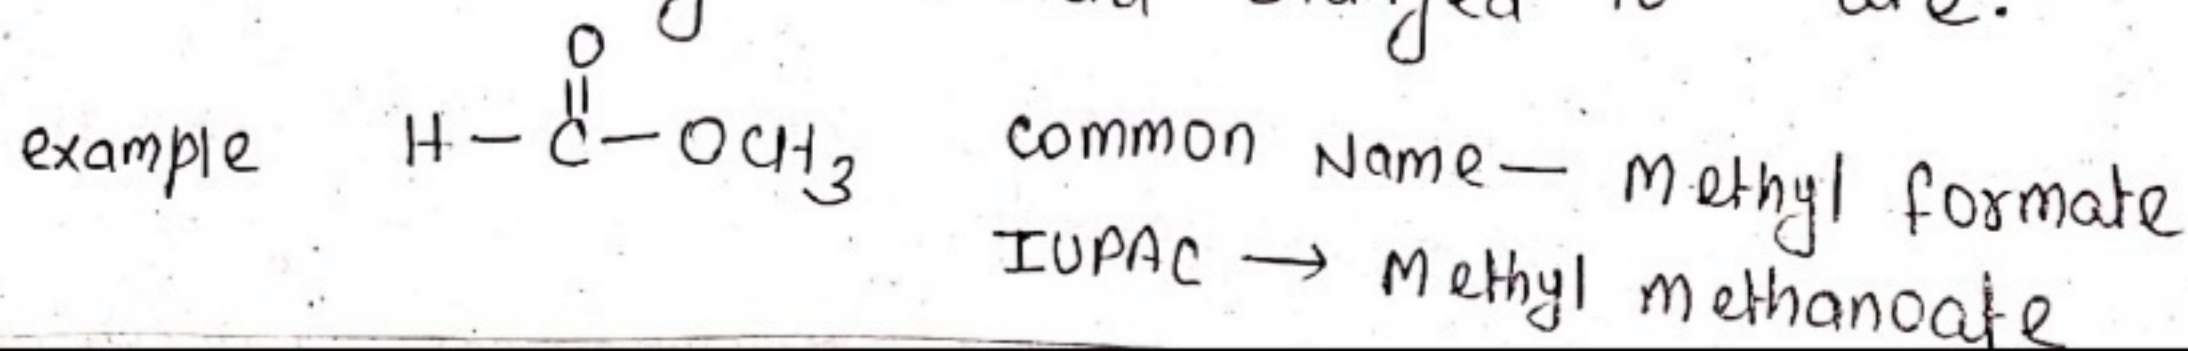 changed to ate.
O
||
example H – C – OCH3 common Name – Methyl formate
IUPAC → Methyl methanoate